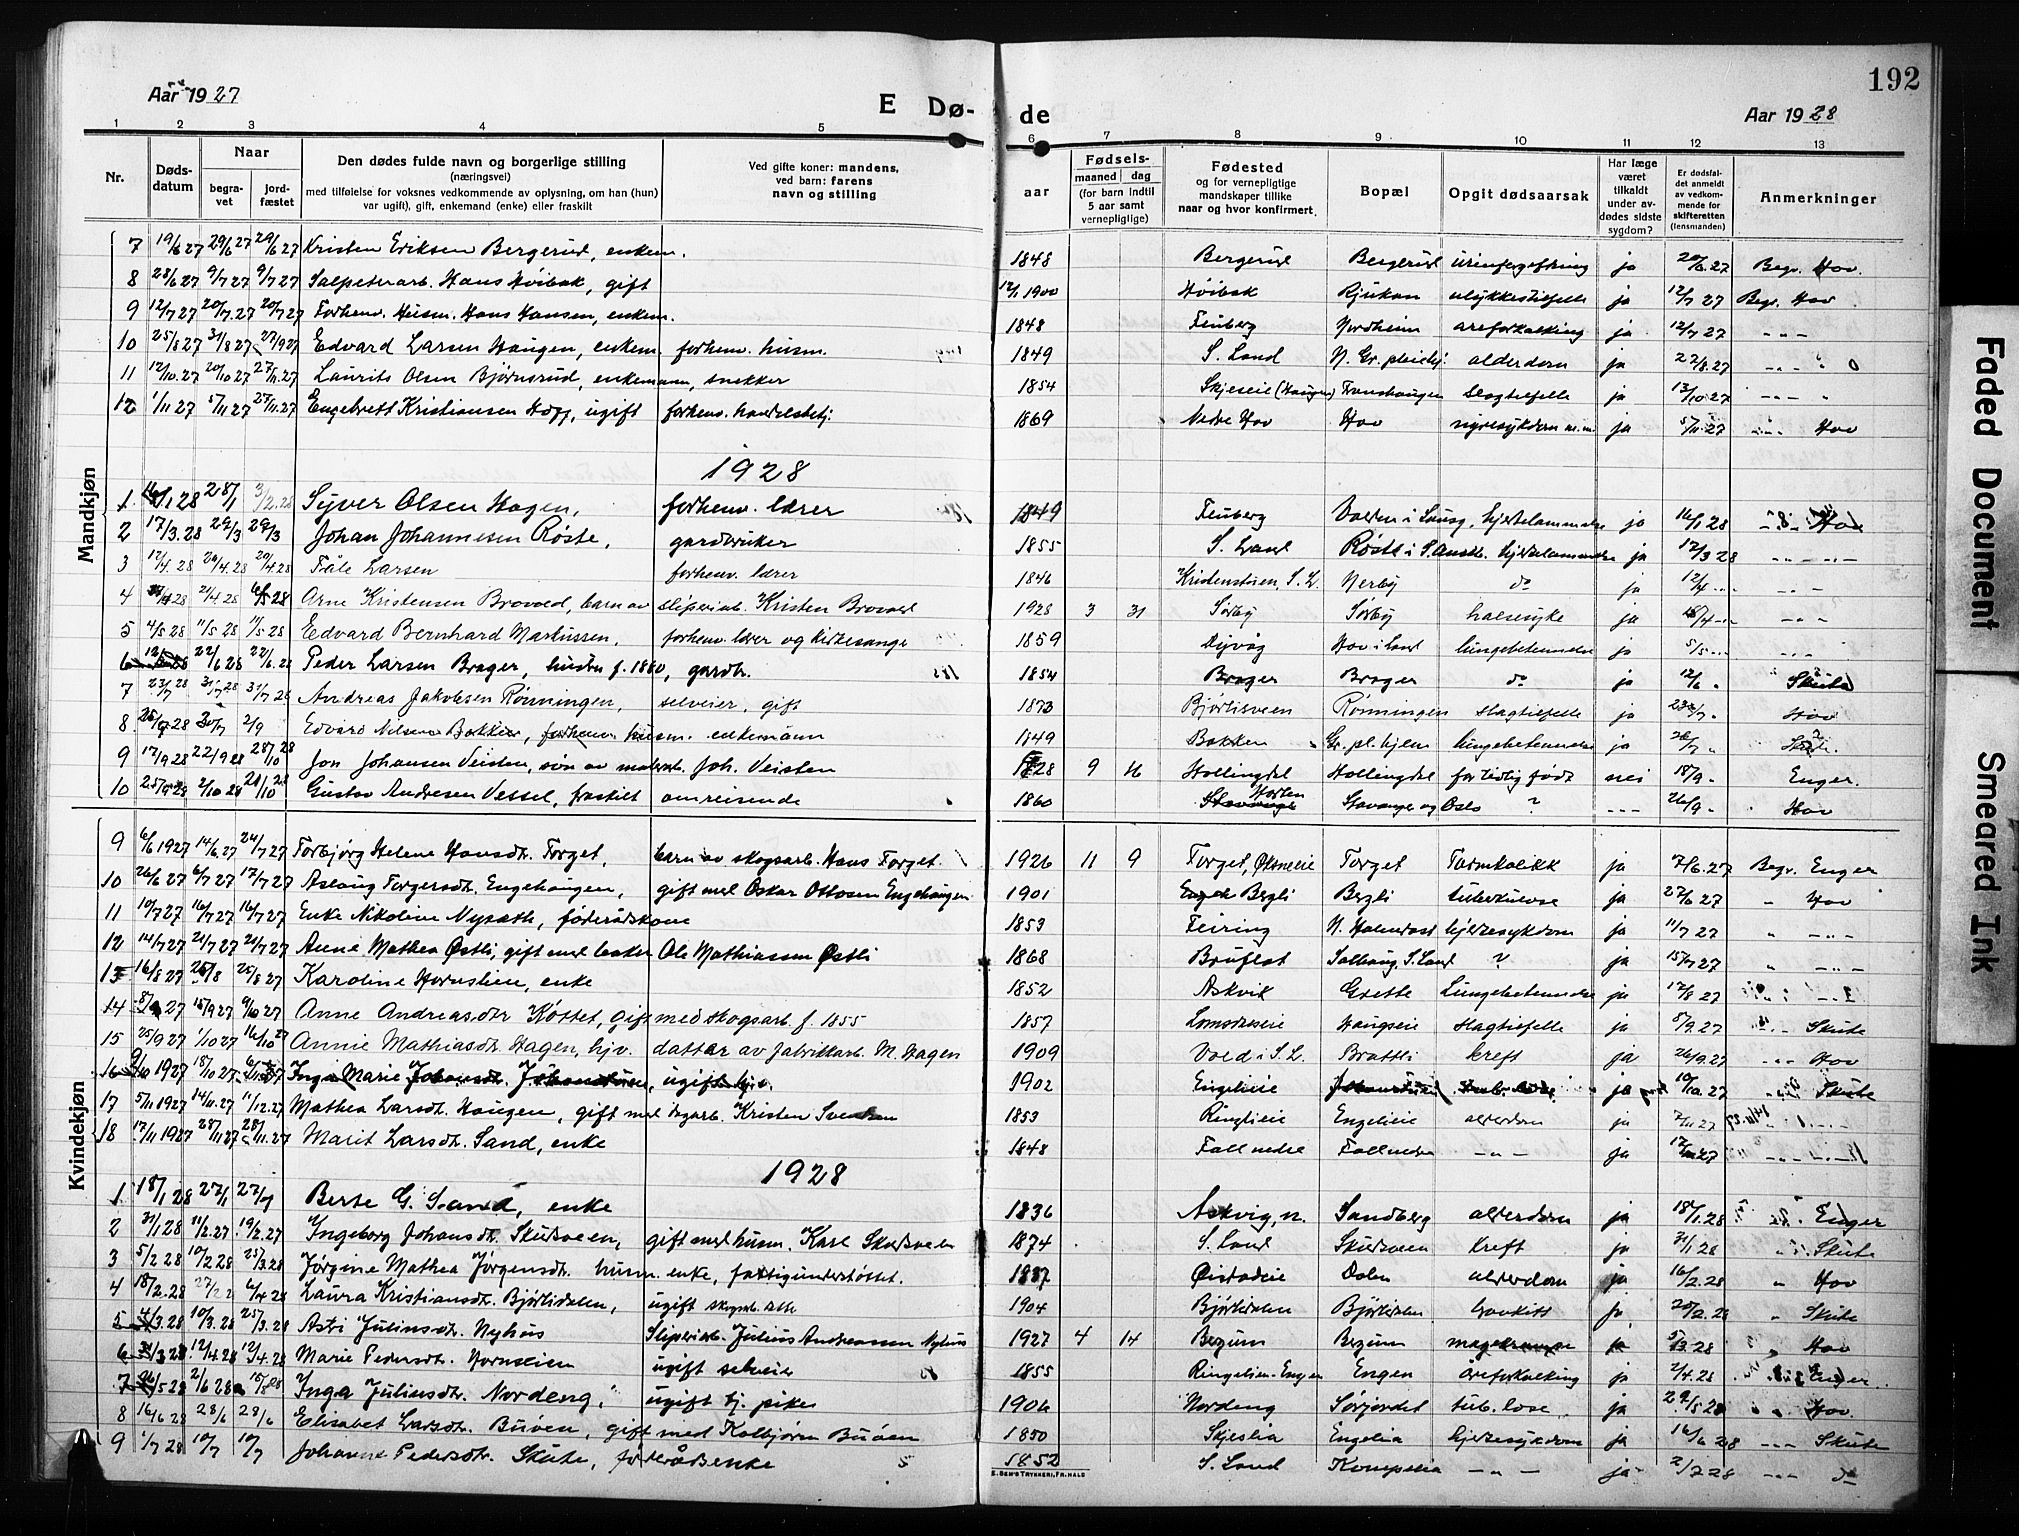 192
Aar 1927
E Dø-
de
Aar 1928
1 2 3 4 5 6 7 8 9 10 11 12 13
Nr.
Døds-
datum
Naar
begra-
vet
jord-
fæstet
Den dødes fulde navn og borgerlige stilling
(næringsvei)
med tilføielse for voksnes vedkommende av oplysning, om han (hun)
var ugift), gift, enkemand (enke) eller fraskilt
Ved gifte koner: mandens,
ved barn: farens
navn og stilling
aar
Fødsels-
maaned dag
(for barn indtil
5 aar samt
vernepligtige)
Fødested
og for vernepligtige
mandskaper tillike
naar og hvor konfirmert.
Bopæl
Opgit dødsaarsak
Har læge
været
tilkaldt
under av-
dødes sidste
sygdom?
Er dødsfal-
det anmeldt
av vedkom-
mende for
skifteretten
(lensmanden)
Anmerkninger
Mandkjøn
7 19/6 27 29/6 27 29/6 27 Kristen Eriksen Bergerud, enkem. 1848 Bergerud Bergerud ja 20/6.27 Begr. Hov.
8 28/6 27 9/7 27 9/7 27 Salpeterarb. Hans Høibak, gift 12/1 1900 Høibak Rjukan ulykkestilfelle ja 12/7 27 Begr. Hov
9 12/7 27 20/7.27 20/7 27 Forhenv. Husm. Hans Hansen, enkem. 1848 Fenberg Nordheim areforkalking ja 12/7 27 " " "
10 25/8 27 31/8 27 Edvard Larsen Haugen, enkem. forhenv. husm. 1849 S. Land alderdom ja
11 12/10.27 20/10 27 27/11.27 Laurits Olsen Bjørnsrud, enkemann, snekker 1854 Skjeseie (Haugen) slagtilfelle ja 13/10 27
12 1/11 27 5/11 27 27/11.27 Engebrett Kristiansen Hoff, ugift forhenv. handelsbetj. 1869 Nedre Hov Hov nyresykdom m.m ja 5/11.27 Hov
1928
1 28/1 3/2.28 Syver Olsen Hagen, forhenv. lærer 1849 Fenberg hjertelammelse ja 16/1 28 Hov
2 17/3.28 29/3 29/3 Johan Johannesen Røste, gardbruker 1855 S. Land hjertelammelse ja
3 12/4.28 20/4.28 20/4 28 Påle Larsen forhenv. lærer 1846 Kristenstuen, S. L. Nerby do ja 12/4
4 21/4.28 6/5 28 Arne Kristensen Brovold, barn av sliperiarb. Kristen Brovold 1928 3 31 Sørby Sørby halssyke ja
5 4/5 28 11/5 28 11/5 28 Edvard Bernhard Markussen, forhenv. lærer og kirkesanger 1859 Dyvåg Hov i Land lungebetennelse ja 5/5
6 22/6 28 22/6.28 Peder Larsen Brager, f. 1860, gardbr. 1854 Brager Brager do ja 12/6 Skute
7 23/7 28 31/7 28 31/7 28 Andreas Jakobsen Rønningen, selveier, gift 1873 Bjørlisveen Rønningen slagtilfelle ja Hov
8 30/7 2/9 Edvard Nilsen Bakken, forhenv. husm. enkemann 1849 Bakken Gr. pl. hjem lungebetennelse ja
9 17/9 28 22/9 28 28/10 28 Jon Johansen Veisten, søn av malersv. Joh. Veisten 1928 9 16 Hollingdal Hollingdal for tidlig født nei 18/9 Enger.
10 25/9 28 2/10 28 Gustav Andresen Vessel, fraskilt omreisende 1860 Horten Stavanger og Oslo ? 26/9 Hov
Kvindekjøn
9 6/6 1927 14/6.27 24/7 27 Torbjørg Helene Hansdtr. Torget, barn av skogsarb. Hans Torget. 1926 11 9 Torget, Økneeie Torget Tarmkolikk ja 7/6.27 Begr. Enger
10 26/6 27 6/7 27 17/7 27 Aslaug Torgersdtr. Engehaugen, gift med Oskar Ottosen Engehaugen 1901 Bergli Bergli tuberkulose ja 27/6 27 " Hov
11 10/7 27 16/7 27 16/7 27 Enke Nikoline Nysæth, føderådskone 1853 Feiring hjertesykdom ja 11/7 27
12 14/7 27 24/7 27 24/7 27 Anne Mathea Østli, gift med Ole Mathiassen Østli 1868 Bruflat Solhaug, S. Land ? ja 15/7 27
13 16/8 27 25/8 25/8 27 Karoline Hornslien, enke 1852 Askvik Grette Lungebetennelse ja 17/8 27
14 15/9 27 9/10 27 Anne Andreasdtr Køttet, gift med skogsarb. f. 1855 1857 Lomsdaseie Haugseie slagtilfelle ja 8/9.27 Skute
15 25/9 27 1/10 27 16/10 27 Annie Mathiasdtr. Hagen, hjv. datter av fabrikkarb. M. Hagen 1909 Vold i S. L. Brattli kreft ja 26/9.27 Hov
16 9/10 1927 18/10 27 Inga Marie Johansdtr. Johanstuen, ugift hjv. 1902 Engelieie ja 10/10.27 Skute
17 5/11 1927 14/11.27 11/12.27 Mathea Larsdtr. Haugen, gift med Kristen Svendsen 1853 Ringlieie Engelieie alderdom ja 7/11 27
18 17/11 1927 28/11 27 28/11.27 Marit Larsdtr. Sand, enke 1848 Fall nedre Fall nedre " ja
1928
1 18/1 28 27/1 27/1 Berte G. Sand, enke 1836 Askvig, n. Sandberg alderdom ja 18/1.28 Enger
2 31/1 28 11/2.27. 19/2.27 Ingeborg Johansdtr. Skudsveen, gift med husm. Karl Skudsveen 1874 S. Land Skudsveen kreft ja 31/1 28 Skute
3 5/2 28 10/2 28 25/3.28 Jørgine Mathea Jørgensdtr. husm. enke, fattigunderstøttet. 1837 Dalen alderdom ja 16/2.28 " Hov
4 18/2.28 27/2 2 6/4 28 Laura Kristiansdtr. Bjørlidalen, ugift 1904 Bjørlidalen Bjørlidalen ja 20/2.28 " Skute
5 4/3.28 10/3.28 25/3.28 Asti Juliusdtr. Nyhus Sliperiarb. Julius Andreassen Nyhus 1927 4 14 Bergum Bergum ja 5/3.28 Hov
6 31/3 28 12/4.28 12/4.28 Marie Pedersdtr. Hornslien ugift selveier 1855 Ringelien Enger Engen åreforkalking ja 2/4.28 Enger
7 2/6 28 Inga Juliusdtr. Nordeng, ugift tj. pike 1906 Nordeng Sørjordet tub. lose ja 29/5 28 Hov
8 16/6 28 28/6 28/6 Elisabet Larsdtr. Buøen, gift med Kolbjørn Buøen 1850 Skjeslia Engelia hjertesykdom ja 16/6 28 Skute
9 1/7 28 10/7 10/7 Johanne Pedersdtr. Skute, føderådsenke 1852 S. Land " ja 2/7 28 do
E. SEM'S TRYKKERI, FR.HALD
Faded Document
Smeared Ink